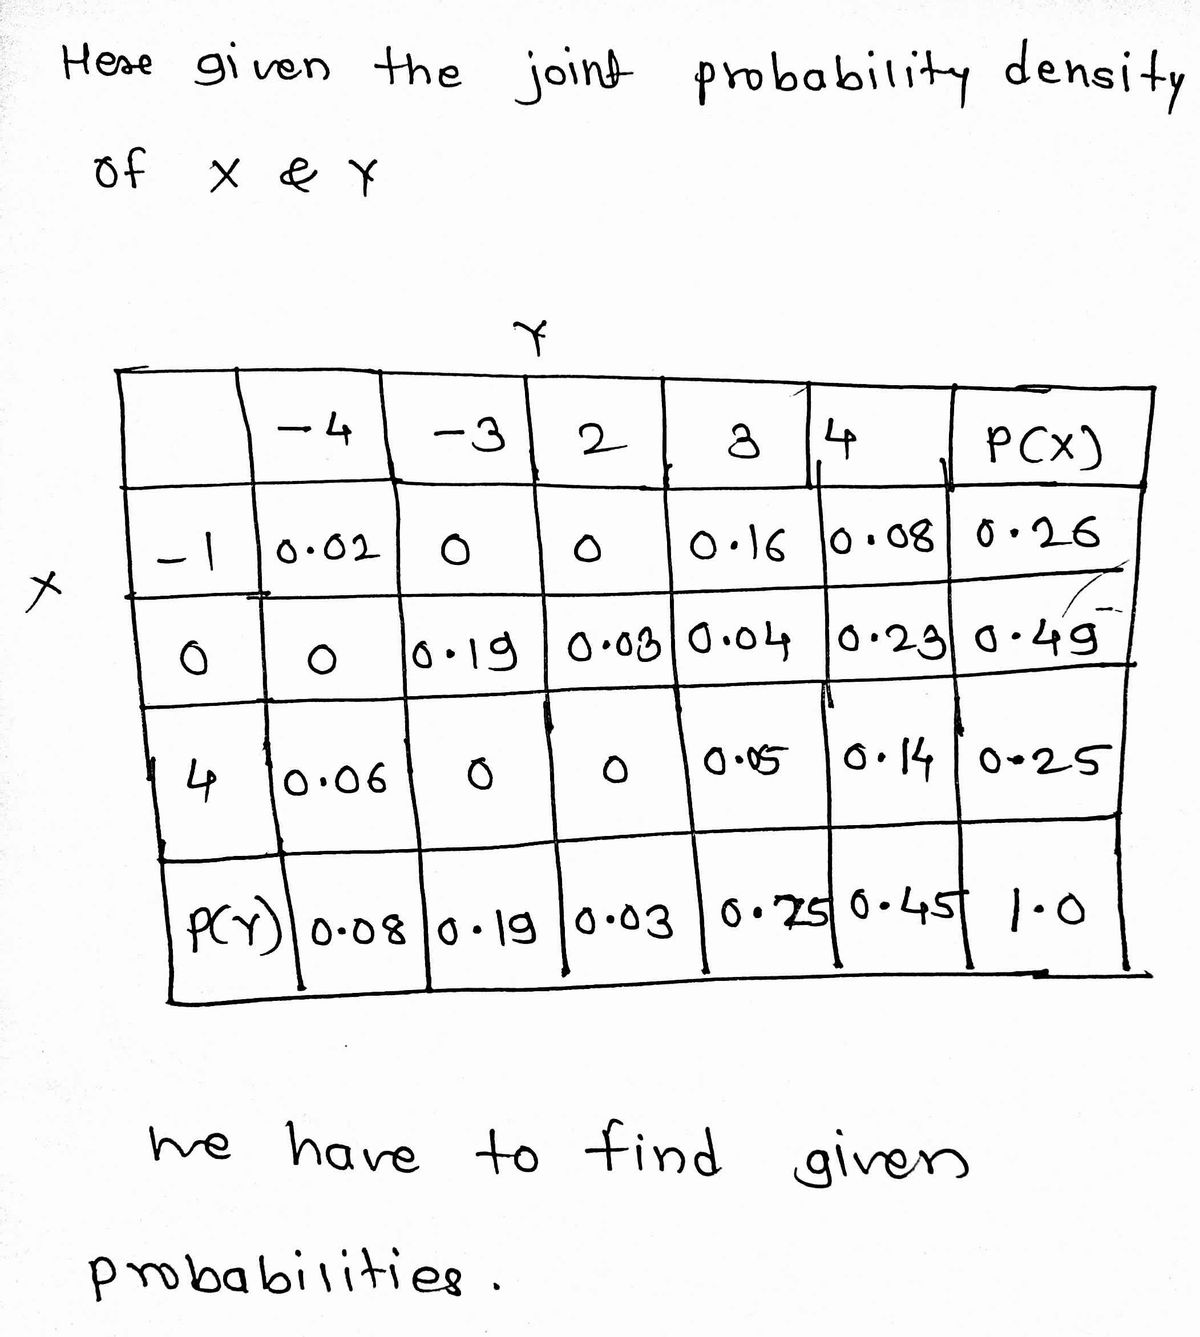 Here given the joint probability density
of X & Y
Y
-4 -3 2 3 4 P(X)
-1 0.02 0 0 0.16 0.08 0.26
X
0 0 0.19 0.03 0.04 0.23 0.49
4 0.06 0 0 0.05 0.14 0.25
P(Y) 0.08 0.19 0.03 0.25 0.45 1.0
we have to find given
probabilities.